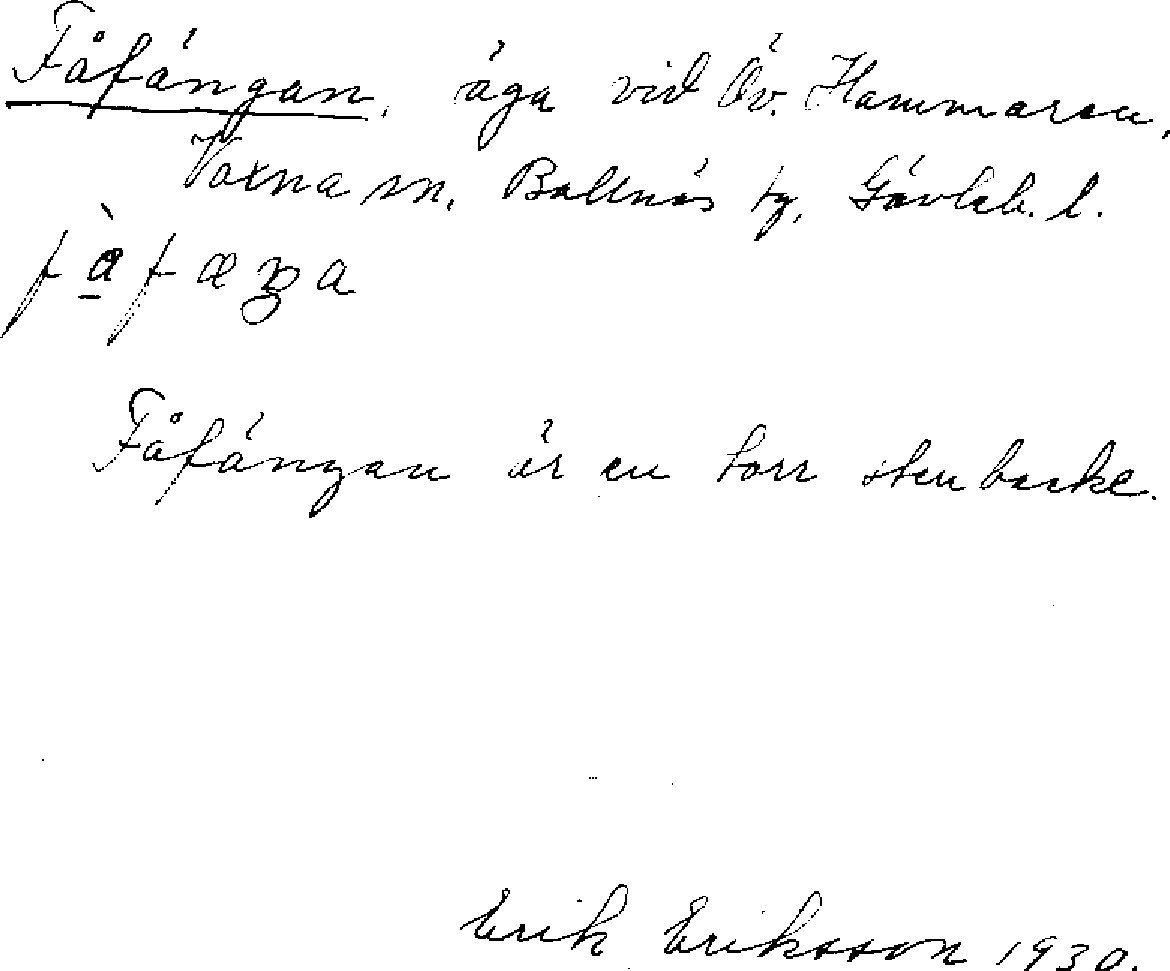 Fåfängan, äga vid Öv. Hammaren,
Voxna sn, Bollnäs tg, Gävleb. l.
fàfæŋa
Fåfängan är en torr stenbacke.
Erik Eriksson 1930.